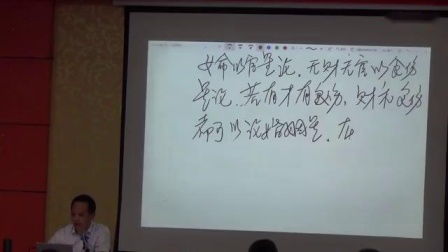 女命以官星论,无财无官以食伤
星论,若有才有食伤,财和食伤
都可以说婚姻星,在